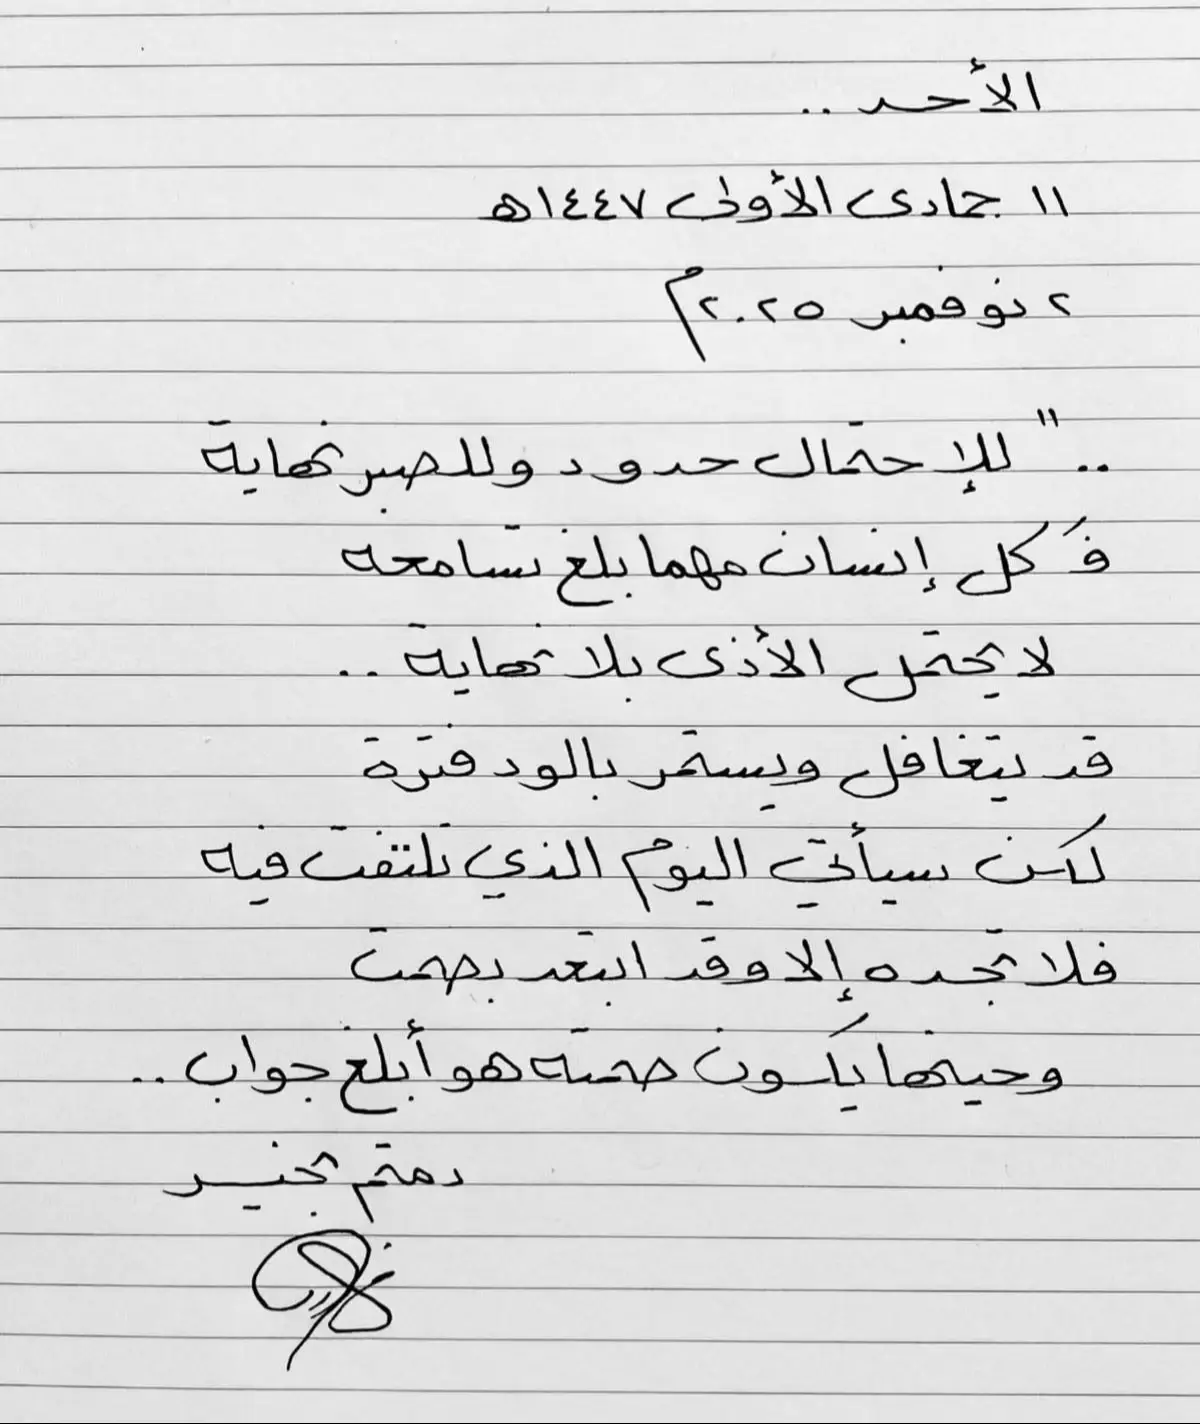 الأحد ..
١١ جمادى الأولى ١٤٤٧هـ
٢ نوفمبر ٢٠٢٥م
.. " للإحتمال حدود وللصبر نهاية
فَكل إنسان مهما بلغ تسامحه
لا يحتمل الأذى بلا نهاية ..
قد يتغافل ويستمر بالود فترة
لكن سيأتي اليوم الذي تلتفت فيه
فلا تجده إلا وقد ابتعد بصمت
وحينها يكون صمته هو أبلغ جواب ..
دمتم بخير